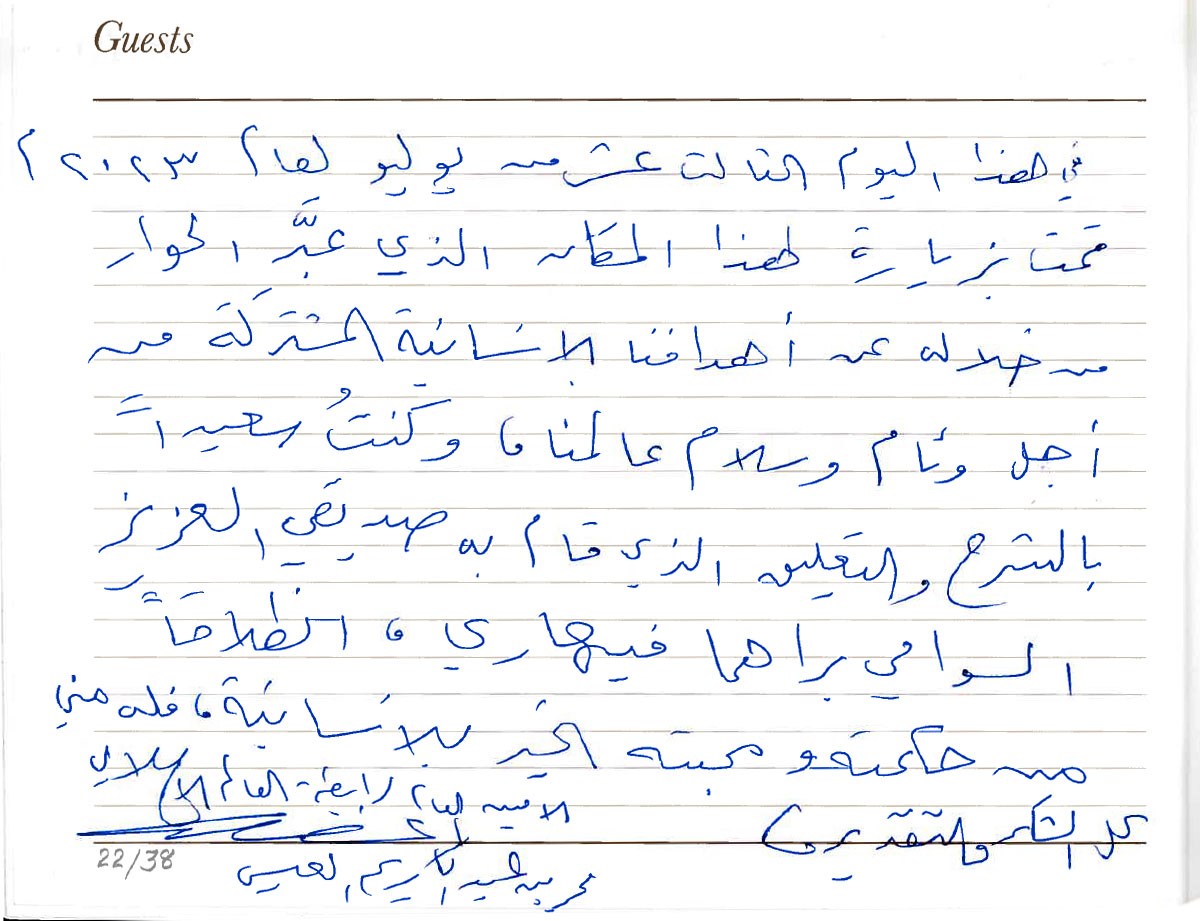 Guests
في هذا اليوم الثالث عشر من يوليو لعام ٢٠٢٣ م
قمت بزيارة لهذا المكان الذي عبَّر الحوار
من خلاله عن أهدافنا الإنسانية المشتركة من
أجل وئام وسلام عالمنا، وكنتُ سعيداً
بالشرح والتعليق الذي قام به صديقي العزيز
السوامي براهما فيهاري، انطلاقاً
من حكمته ومحبته الخير للإنسانية، فله مني
كل الشكر والتقدير،
الأمين العام لرابطة العالم الإسلامي
محمد بن عبدالكريم العيسى
22/38